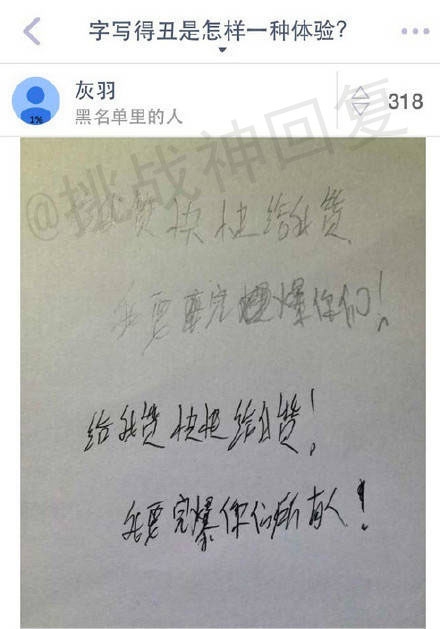 字写得丑是怎样一种体验?
灰羽
黑名单里的人
1%
318
@挑战神回复
快快给我赞
我要完爆你们!
给我赞快快给我赞!
我要完爆你们所有人!